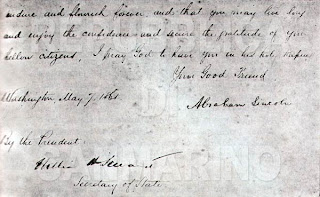 endure and flourish forever, and that you may live long
and enjoy the confidence and secure the gratitude of your
fellow citizens, I pray God to have you in his holy
Your Good Friend
Washington May 7, 1861.
Abraham Lincoln
By the President:
William H Seward
Secretary of State